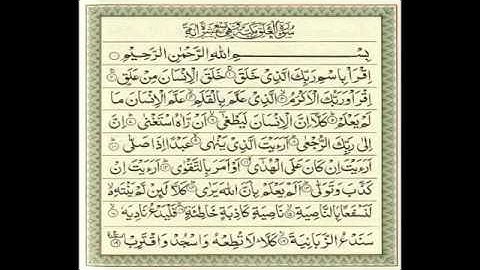 سورة العلق مكية وهي تسع عشرة آية
بسم الله الرحمن الرحيم
اقرأ باسم ربك الذي خلق خلق الإنسان من علق
اقرأ وربك الأكرم الذي علم بالقلم علم الإنسان ما
لم يعلم كلا إن الإنسان ليطغى أن رآه استغنى إن
إلى ربك الرجعى أرءيت الذي ينهى عبدا إذا صلى
أرءيت إن كان على الهدى أو أمر بالتقوى أرءيت إن
كذب وتولى ألم يعلم بأن الله يرى كلا لئن لم ينته
لنسفعا بالناصية ناصية كاذبة خاطئة فليدع ناديه
سندع الزبانية كلا لا تطعه واسجد واقترب